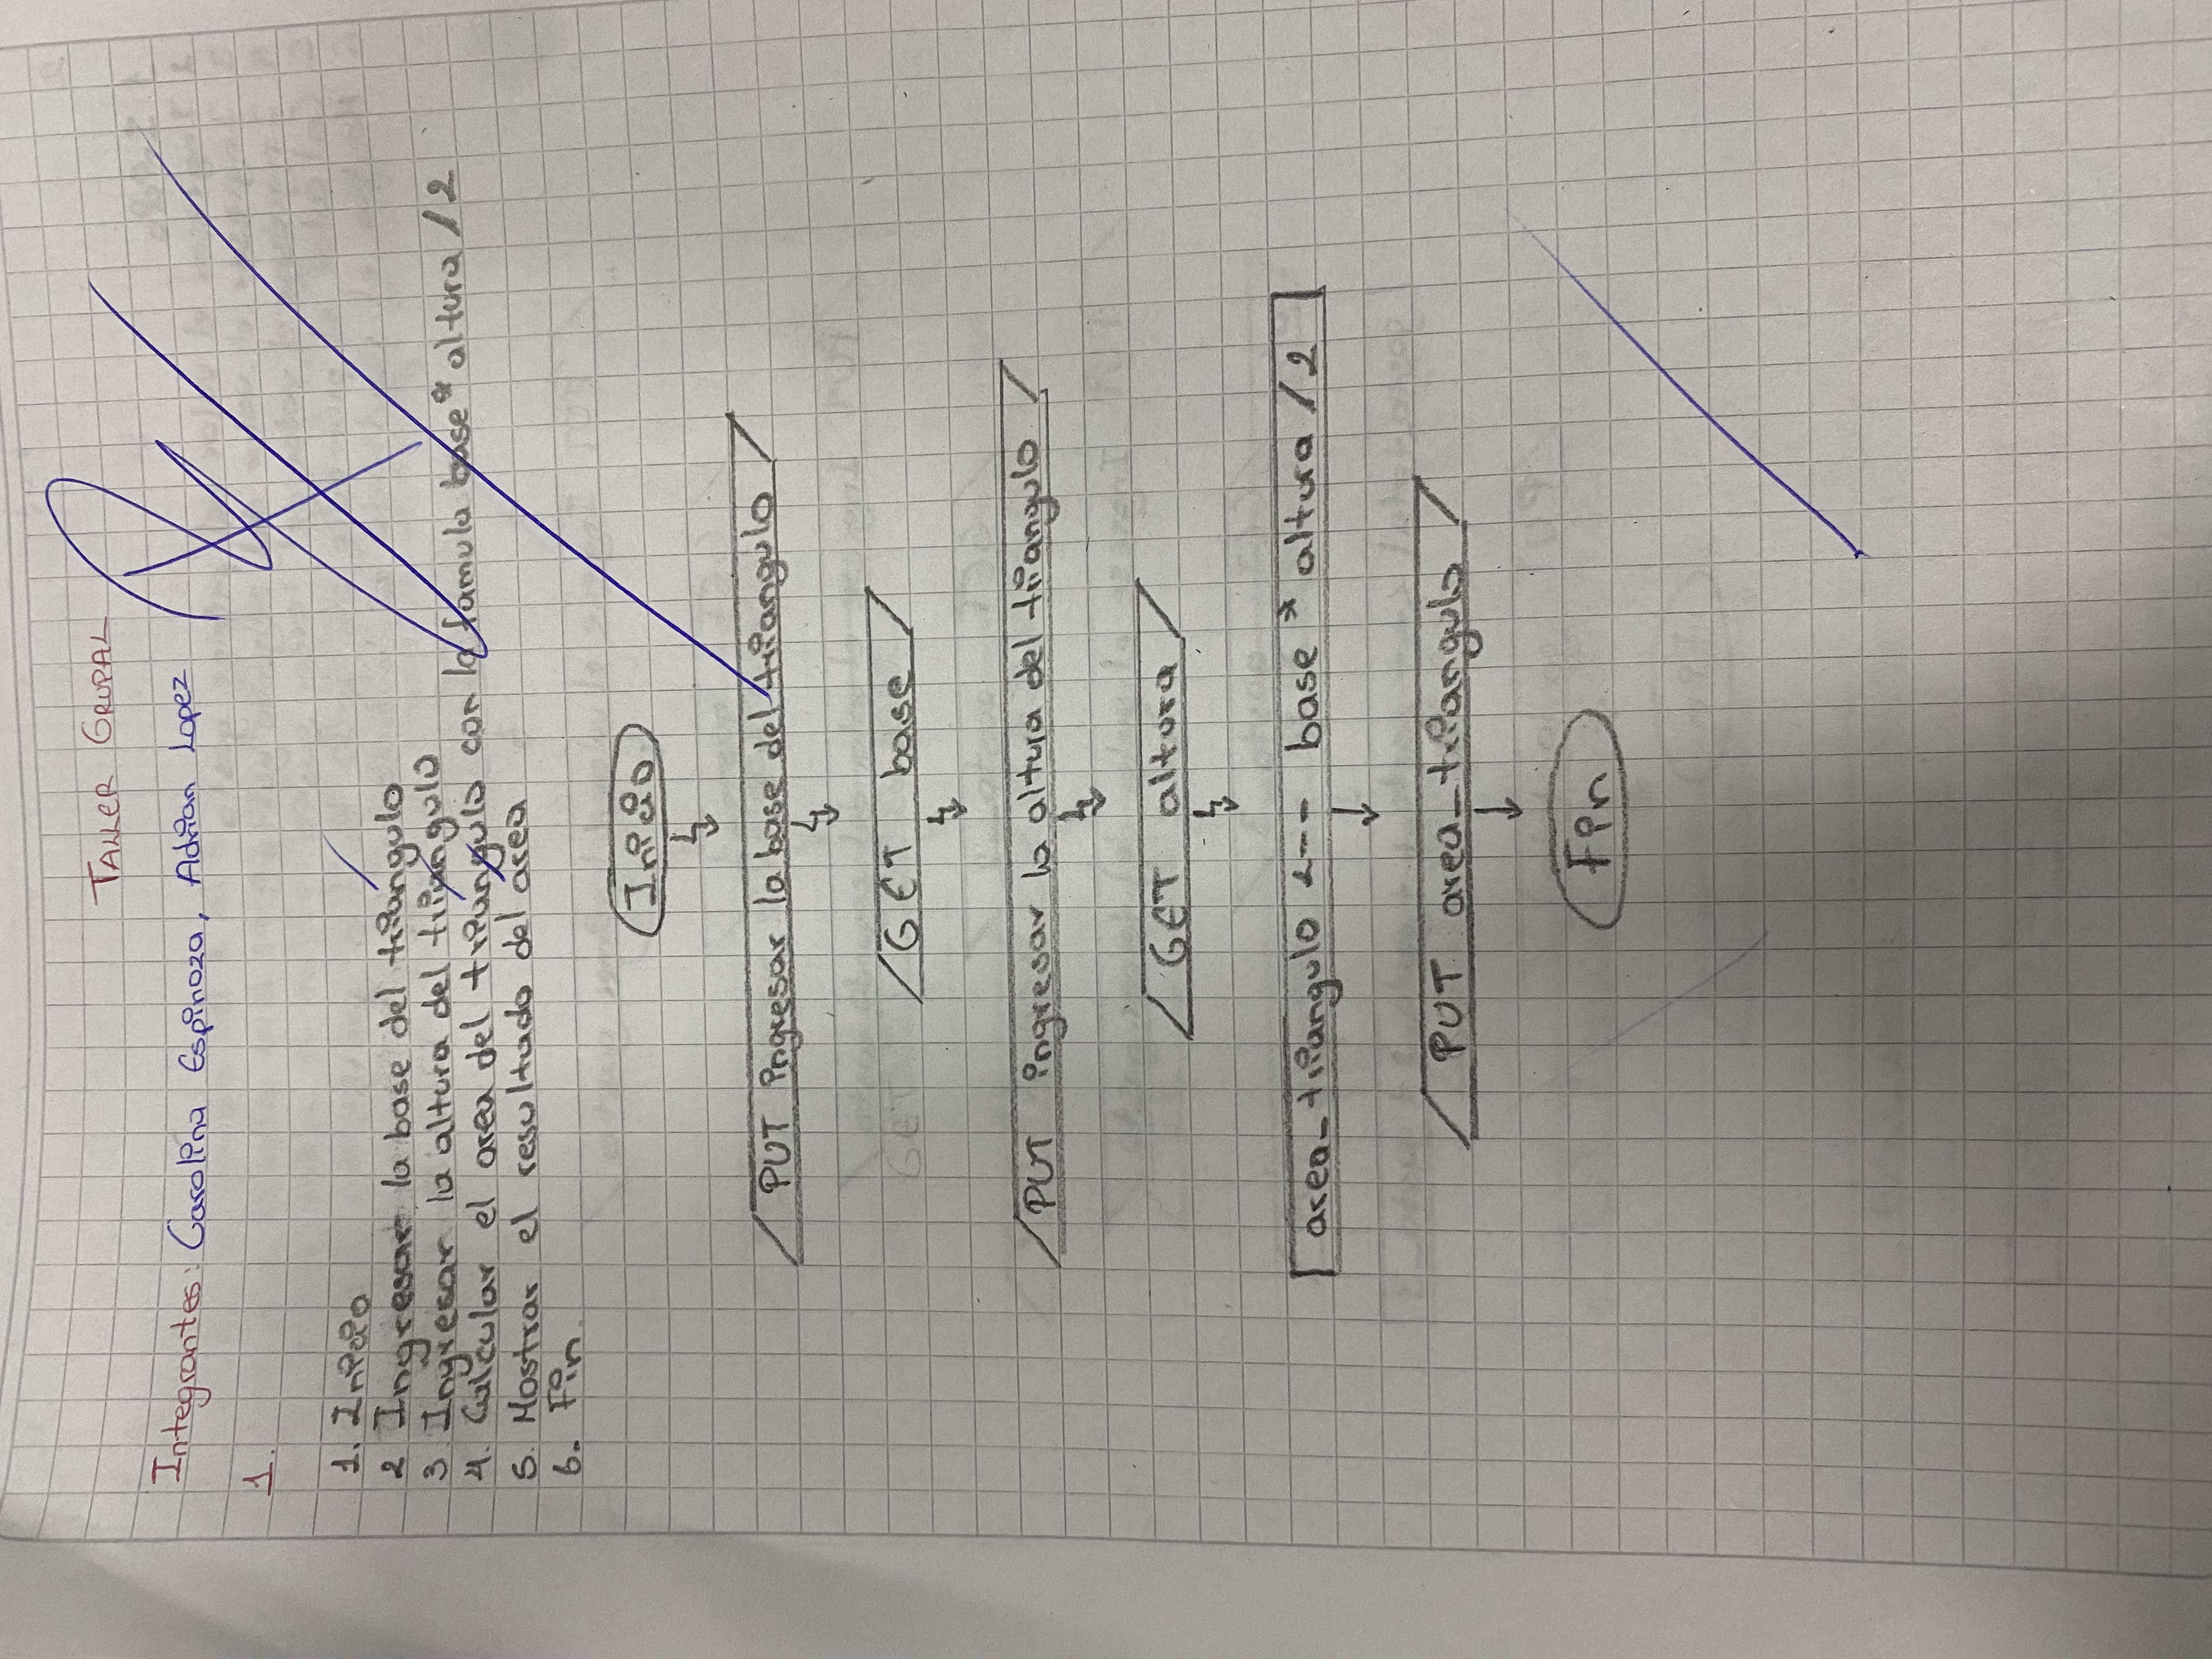 TALLER GRUPAL
Integrantes: Carolina Espinoza, Adrian Lopez
1.
1. Inicio
2 Ingresar la base del triangulo
3 Ingresar la altura del triangulo
4. Calcular el area del triangulo con la famula base * altura / 2
5. Mostrar el resultado del area
6. Fin.
Inicio
PUT ingresar la base del triangulo
GET base
PUT ingresar la altura del triangulo
GET altura
area_triangulo <-- base * altura / 2
PUT area_triangulo
Fin